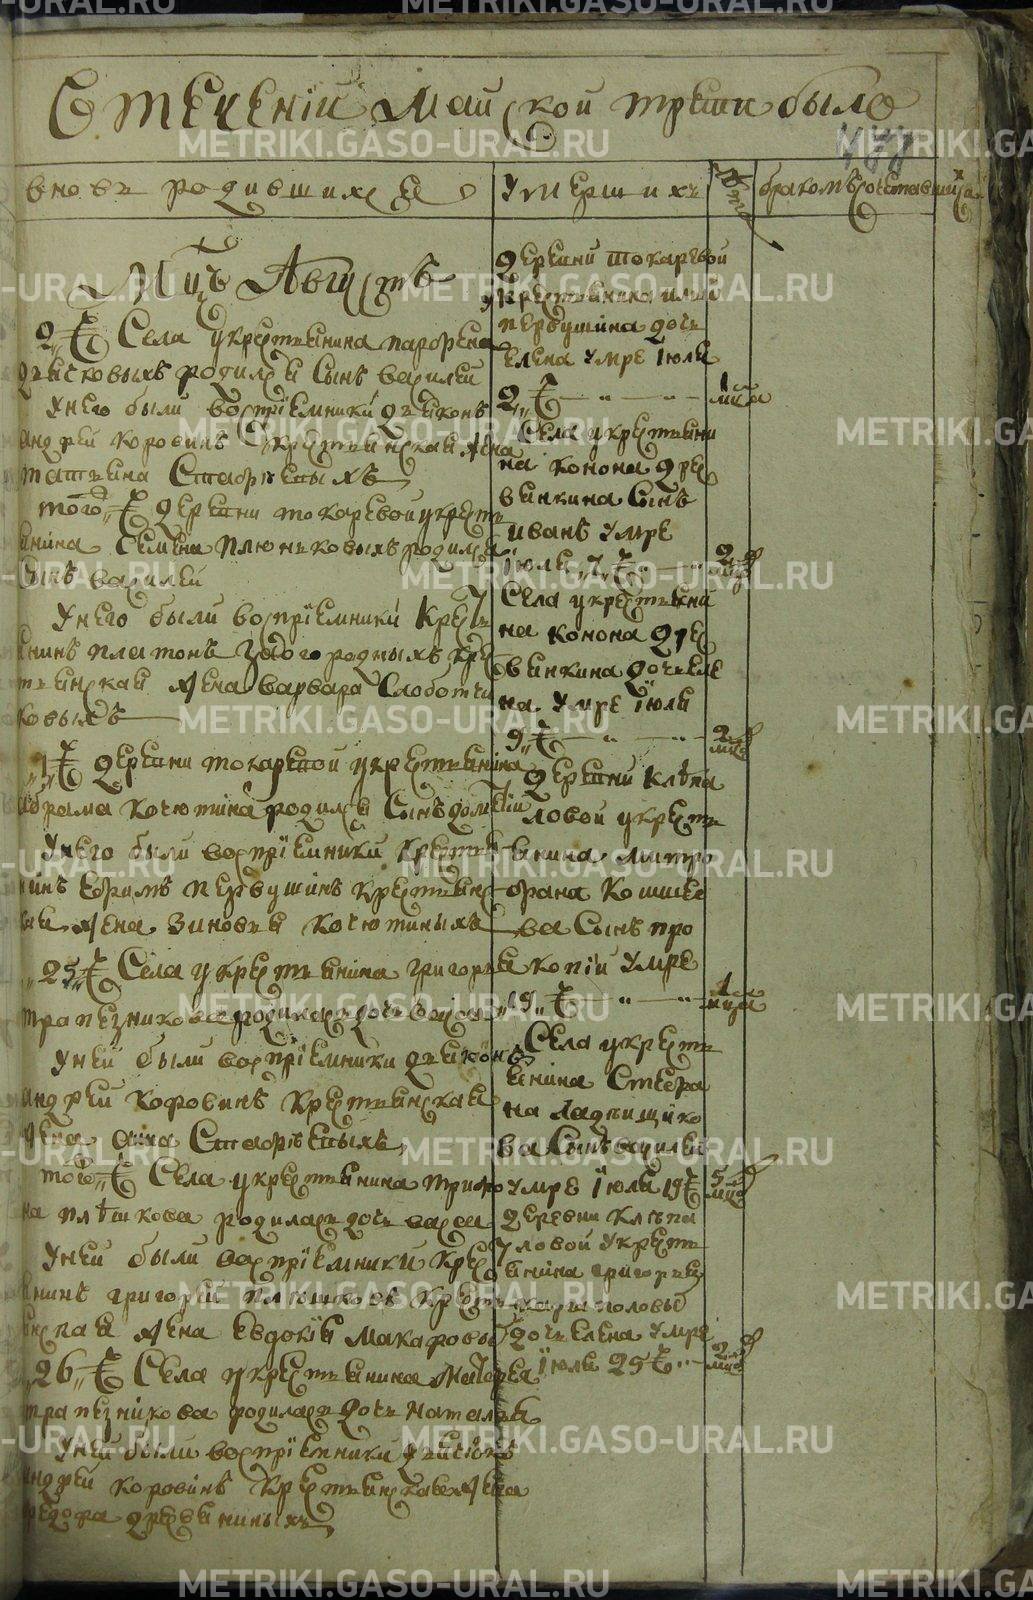 В течении Майской трети было
477
вновь родившихся
Умершихъ
лѣта
бракомъ сочетавшихся
Мцъ Августъ
2 г Села у крестьянина парфена
дьячковыхъ родился Сынъ василей
У него были восприемники дьяконъ
андрей коровинъ крестьянская жена
татьяна Стафѣевыхъ
того г деревни токаревой у кресть
янина Семена плюхиковыхъ родился
сынъ василей
У него были воспрїемники Кресть
янинъ платонъ крес
тьянская жена варвара Слоботчи
ковыхъ
7 г деревни токаревой у крестьянина
абрама кочютина родился Сынъ
У него были воспрїемники Крестья
нинъ ефимъ первушинъ крестьянс
кая жена Зиновья кочютиныхъ
25 г Села у крестьянина григорья
трапезникова родилась дочь васса
У ней были воспрїемники дьяконъ
андрей коровинъ крестьянская
жена анна Стафѣевыхъ
того г Села у крестьянина трифо
на плѣшкова родилась дочь васса
У ней были воспрїемники крес
янинъ григорий плѣшковъ кресть
янская жена евдокїя макаровы
26 г Села у крестьянина Матфея
трапезникова родилась дочь наталья
У ней были воспрїемники дьяконъ
андрей коровинъ крестьянская жена
федора дресвяниныхъ
деревни токаревой
у крестьянина ильи
первушина дочь
елена умре Июля
2 г
1 мца
Села у крестьяни
на конона дрес
вянкина Сынъ
иванъ умре
Июля 7 г
2 мца
Села у крестьяни
на конона дрес
вянкина дочь еле
на умре Июля
9 г
2 мца
деревни клѣпа
ловой у кресть
янина митро
фана кошкаро
ва Сынъ про
копий умре
19 г
1 мца
Села у кресть
янина Стефа
на ладыщико
ва Сынъ василей
умре Июля 19 г
5 мца
деревни клѣпа
ловой у кресть
янина григорья
харламповы
дочь елена умре
Июля 25 г
2 мца
METRIKI.GASO-URAL.RU